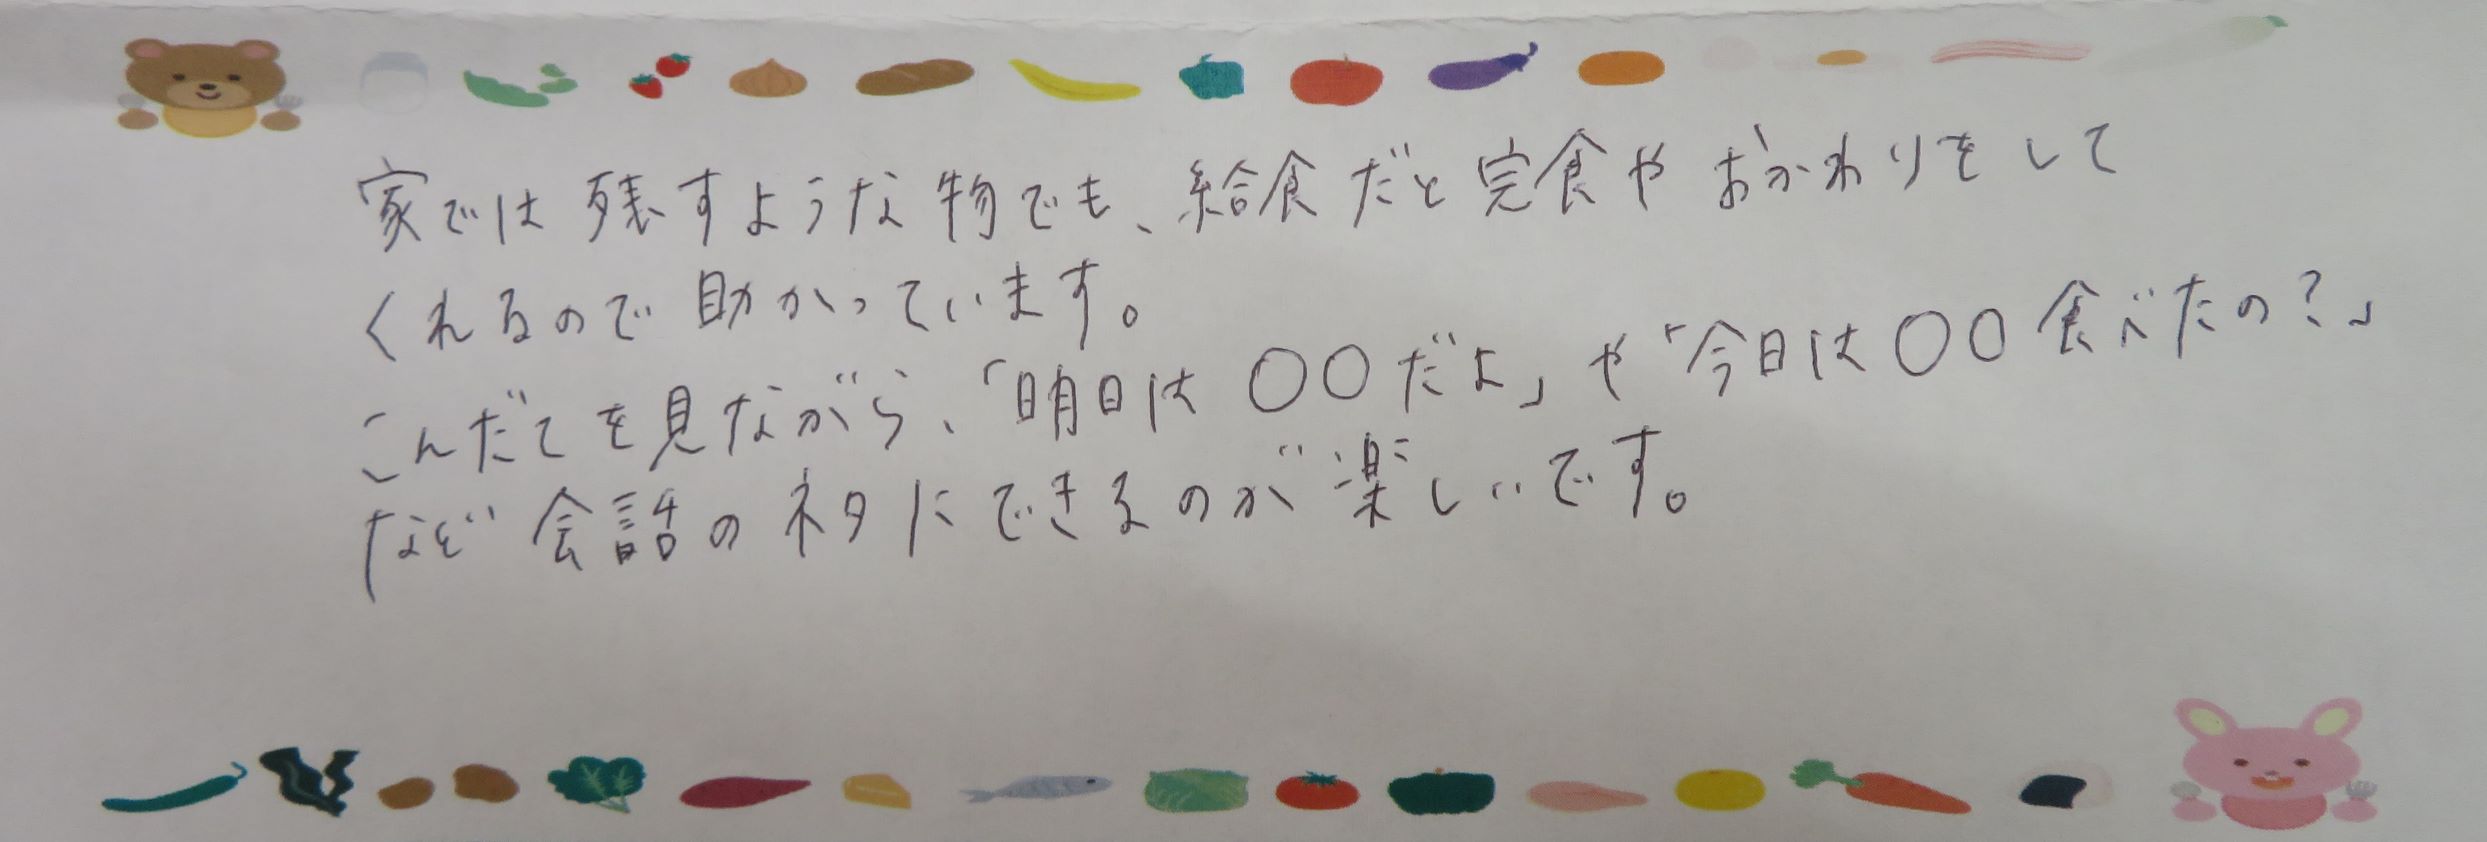 家では残すような物でも、給食だと完食やおかわりをして
くれるので助かっています。
こんだてを見ながら、「明日は〇〇だよ」や「今日は〇〇食べたの？」
など会話のネタにできるのが楽しいです。